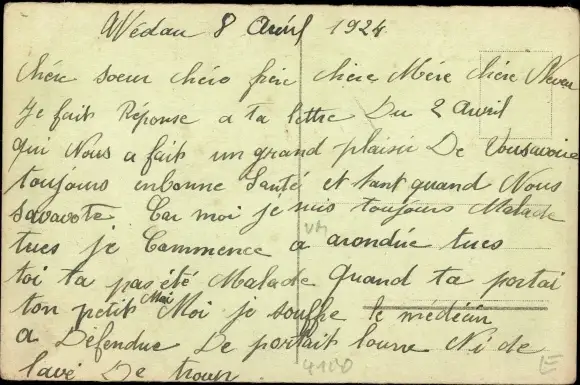 Wédau 8 Avril 1924
chére soeur chére frére chére Mére chére Neveu
Je fait Réponse a ta lettre Du 2 avril
qui Nous a fait un grand plaisir De Vousavoire
toujours enbonne Santé et tant quand Nous
savavote Car moi je suis toujours Malade
tues je Commence a arondire tues
toi ta pas été Malade quand ta portai
ton petit Mai Moi je souffre le médecin
a Défendue De portait lourre Ni de
lavé De trour
VM
4100
E